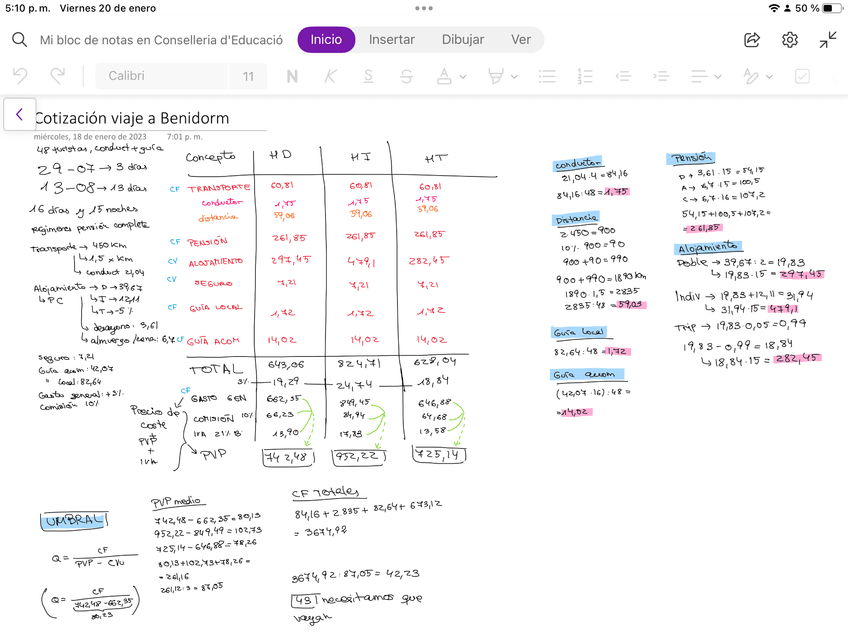 5:10 p.m. Viernes 20 de enero
50 %
Mi bloc de notas en Conselleria d'Educació
Inicio
Insertar
Dibujar
Ver
Calibri
11
N
K
S
S
A
Cotización viaje a Benidorm
miércoles, 18 de enero de 2023 7:01 p. m.
48 turistas, conduct + guía
29-07 → 3 días
13-08 → 13 días
16 días y 15 noches
Regimenes pensión completa
Transporte → 450 Km
↳ 1,5 x Km
↳ conduct 21,04
Alojamiento → D → 39,67
↳ PC
↳ I → 12,11
↳ T → -5%
↳ desayuno: 3,61
↳ almuerzo/cena: 6,7
Seguro: 7,21
Guía acom: 42,07
" local: 82,64
Gasto general: +3%
Comisión 10%
Concepto HD HI HT
CF TRANSPORTE 60,81 60,81 60,81
conductor 1,75 1,75 1,75
distancia 59,06 59,06 59,06
CF PENSIÓN 261,85 261,85 261,85
CV ALOJAMIENTO 297,45 479,1 282,45
CV SEGURO 7,21 7,21 7,21
CF GUÍA LOCAL 1,72 1,72 1,72
CF GUÍA ACOM 14,02 14,02 14,02
TOTAL 643,06 824,71 628,04
3% 19,29 24,74 18,84
CF GASTO GEN 662,35 849,45 646,88
COMISIÓN 10% 66,23 84,94 64,68
IVA 21% B. 13,90 17,83 13,58
PVP 742,48 952,22 725,14
Precio de coste
+
PVP
+
IVA
conductor
21,04 · 4 = 84,16
84,16 : 48 = 1,75
Distancia
2 · 450 = 900
10% · 900 = 90
900 + 90 = 990
900 + 990 = 1890 km
1890 · 1,5 = 2835
2835 : 48 = 59,06
Guía local
82,64 : 48 = 1,72
Guía acom
(42,07 · 16) : 48 =
= 14,02
Pensión
D → 3,61 · 15 = 54,15
A → 6,7 · 15 = 100,5
C → 6,7 · 16 = 107,2
54,15 + 100,5 + 107,2 =
= 261,85
Alojamiento
Doble → 39,67 : 2 = 19,83
↳ 19,83 · 15 = 297,45
Indiv → 19,83 + 12,11 = 31,94
↳ 31,94 · 15 = 479,1
Trip → 19,83 · 0,05 = 0,99
19,83 - 0,99 = 18,84
↳ 18,84 · 15 = 282,45
UMBRAL
Q = CF / PVP - CVu
(Q = CF / 742,48 - 662,35)
80,23
PVP medio
742,48 - 662,35 = 80,13
952,22 - 849,49 = 102,73
725,14 - 646,88 = 78,26
80,13 + 102,73 + 78,26 =
= 261,16
261,12 : 3 = 87,05
CF Totales
84,16 + 2.835 + 82,64 + 673,12
= 3674,92
3674,92 : 87,05 = 42,23
43 necesitamos que
vayan